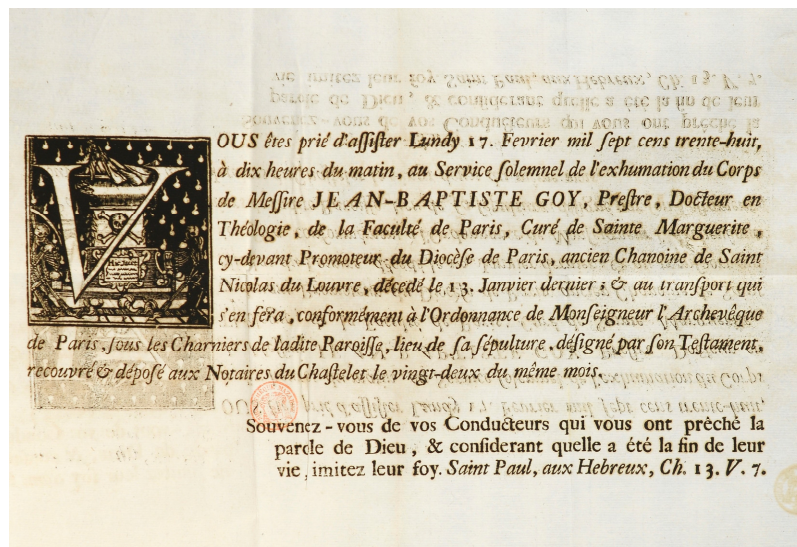 VOUS êtes prié d'aſſiſter Lundy 17. Fevrier mil ſept cens trente-huit,
à dix heures du matin, au Service ſolemnel de l'exhumation du Corps
de Meſſire JEAN-BAPTISTE GOY, Preſtre, Docteur en
Théologie, de la Faculté de Paris, Curé de Sainte Marguerite,
cy-devant Promoteur du Diocèſe de Paris, ancien Chanoine de Saint
Nicolas du Louvre, décedé le 13. Janvier dernier; & au tranſport qui
s'en fera, conformément à l'Ordonnance de Monſeigneur l'Archevêque
de Paris, ſous les Charniers de ladite Paroiſſe, lieu de ſa ſépulture, déſigné par ſon Teſtament,
recouvré & dépoſé aux Notaires du Chaſtelet le vingt-deux du même mois.
Souvenez-vous de vos Conducteurs qui vous ont prêché la
parole de Dieu, & conſiderant quelle a été la fin de leur
vie, imitez leur foy. Saint Paul, aux Hebreux, Ch. 13. V. 7.